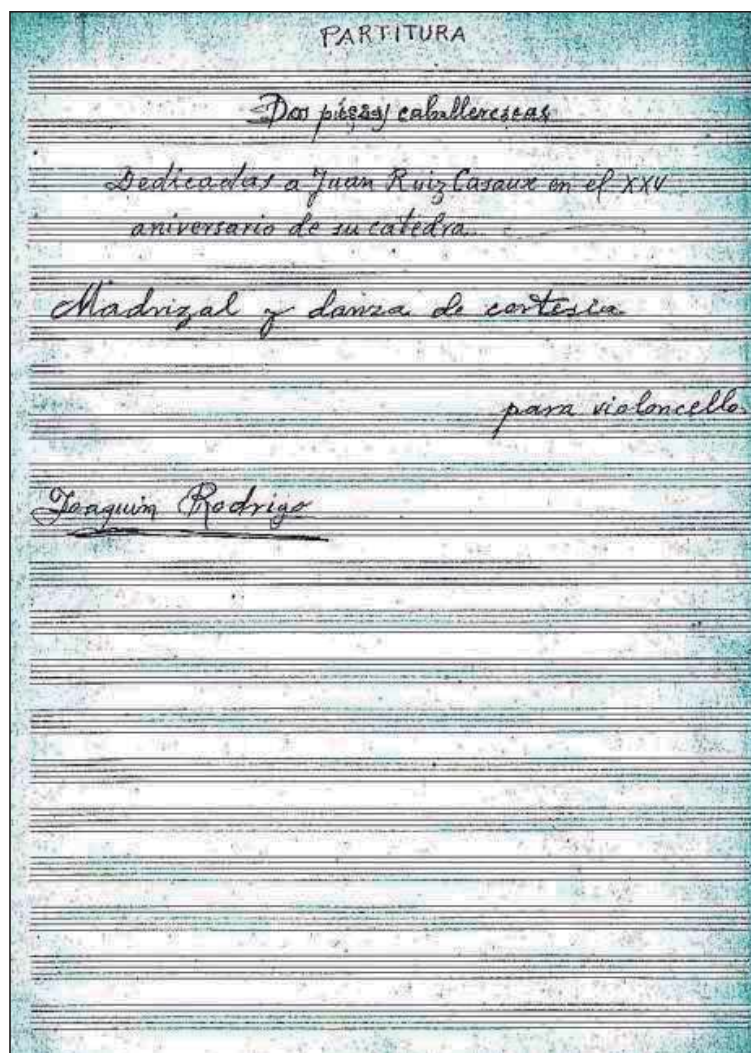 PARTITURA
Dos piezas caballerescas
Dedicadas a Juan Ruiz Casaux en el XXV
aniversario de su catedra
Madrigal y danza de cortesia
para violoncello.
Joaquim Rodrigo